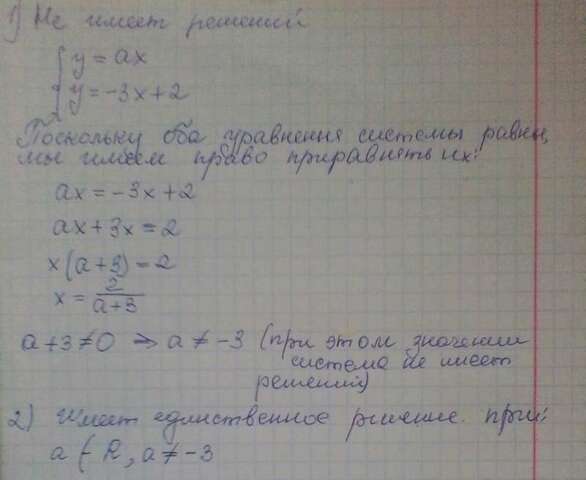 1) Не имеет решений
{ y = ax
y = -3x + 2
Поскольку оба уравнения системы равны,
мы имеем право приравнять их:
ax = -3x + 2
ax + 3x = 2
x(a+3) = 2
x = 2/(a+3)
a + 3 ≠ 0 => a ≠ -3 (при этом значении
система не имеет
решений)
2) Имеет единственное решение при:
a ∈ R, a ≠ -3